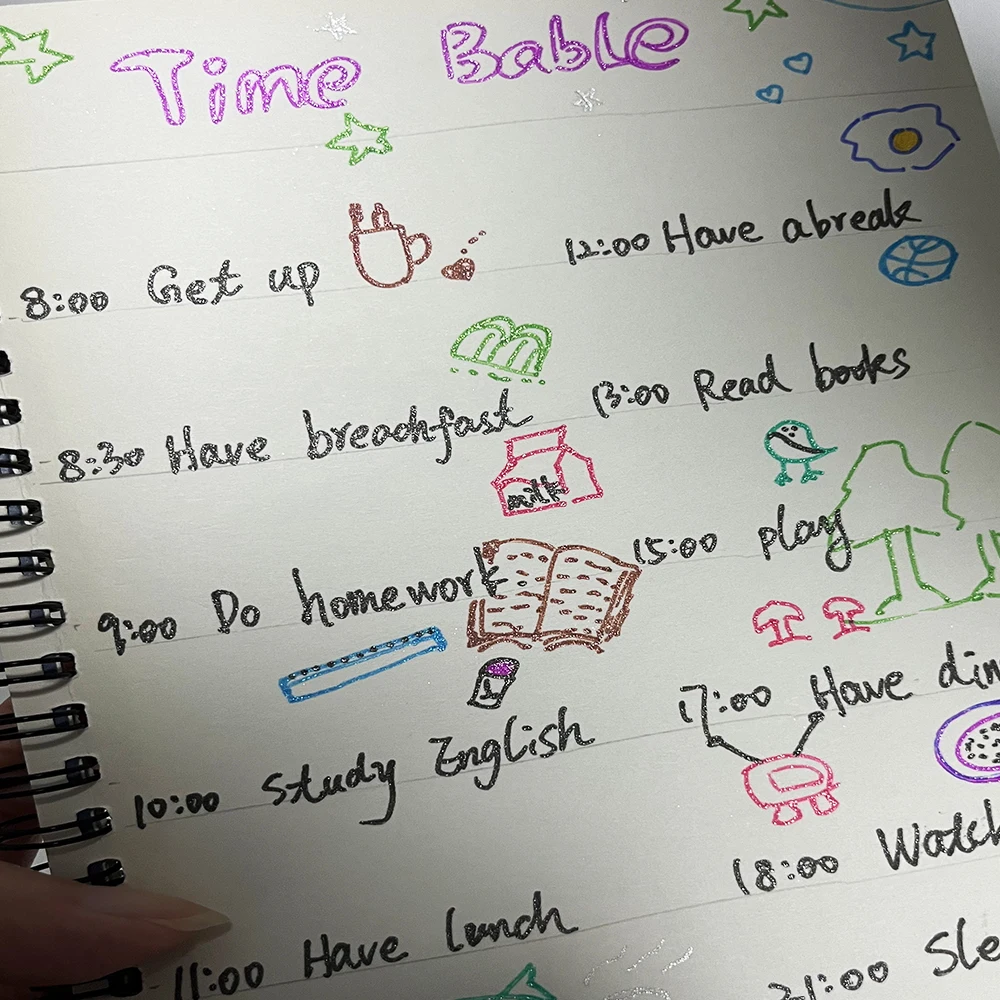 Time Bable
8:00 Get up
8:30 Have breachfast
milk
9:00 Do homework
10:00 Study English
11:00 Have lunch
12:00 Have abreak
13:00 Read books
15:00 play
17:00 Have din
18:00 Watch
21:00 Sle